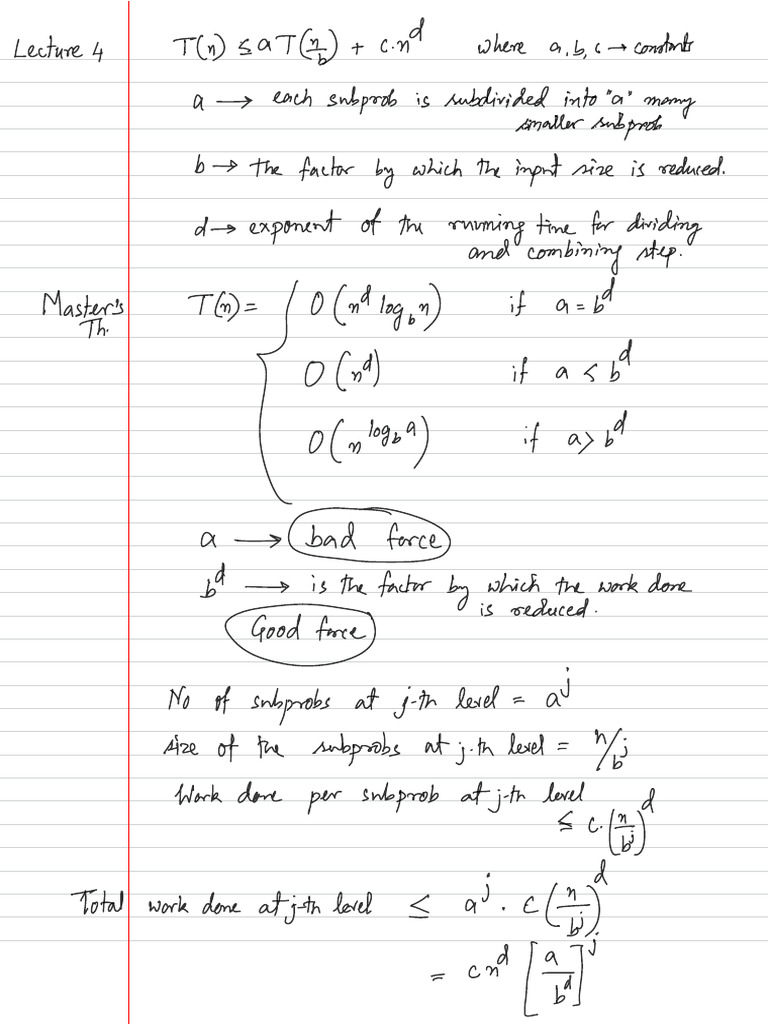 Lecture 4 T(n) ≤ a T(n/b) + c.n^d where a, b, c → constants
a → each subprob is subdivided into "a" many
smaller subprob
b → the factor by which the input size is reduced.
d → exponent of the running time for dividing
and combining step.
Master's Th. T(n) = { O(n^d log_b n) if a = b^d
O(n^d) if a < b^d
O(n^(log_b a)) if a > b^d
a → bad force
b^d → is the factor by which the work done
is reduced.
Good force
No of subprobs at j-th level = a^j
size of the subprobs at j-th level = n/b^j
Work done per subprob at j-th level
≤ c.(n/b^j)^d
Total work done at j-th level ≤ a^j . c(n/b^j)^d
= cn^d [a/b^d]^j